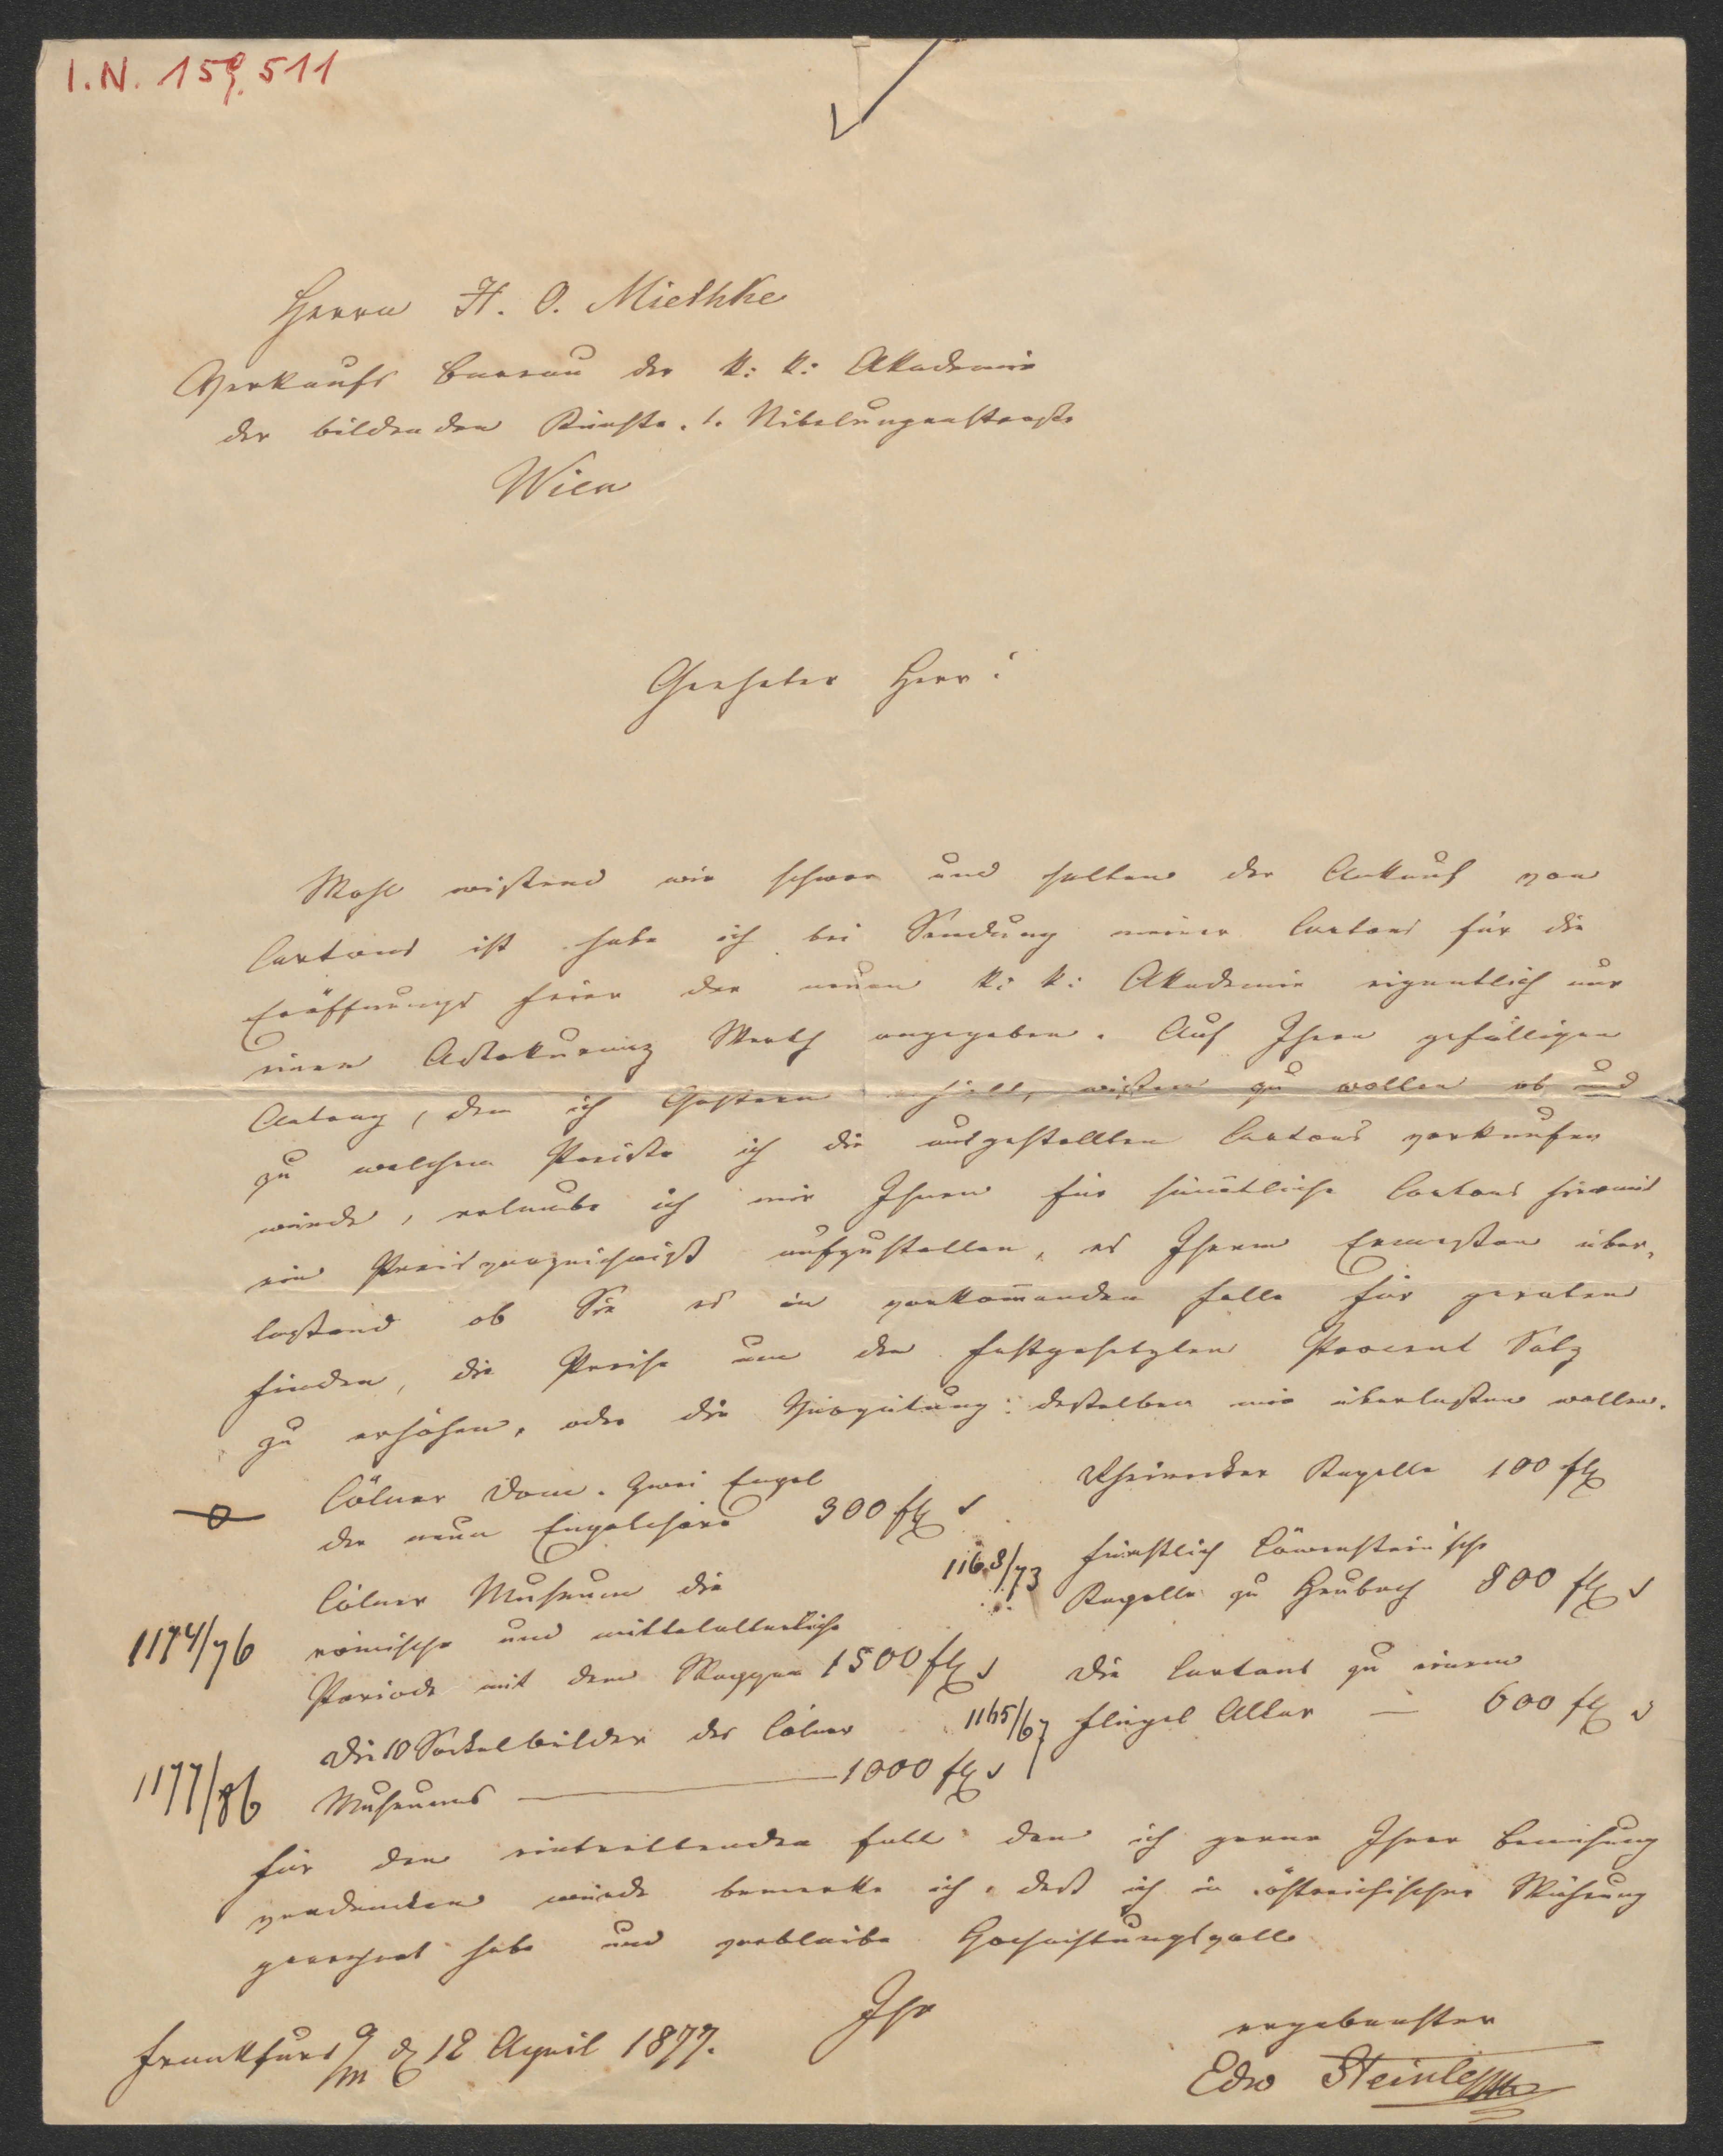 I.N. 159.511
Herrn H. O. Miethke
Verkaufs Bureau der k: k: Akademie
der bildenden Künste. 1. Nibelungenstraße
Wien
Geehrter Herr!
Wohl wißend wie schwer und selten der Ankauf von
Cartons ist habe ich bei Sendung meiner Cartons für die
Eröffnungs feier der neuen k: k: Akademie eigentlich nur
einen Assekuranz Werth angegeben. Auf Ihren gefälligen
Antrag, den ich Gestern erhielt, wißen zu wollen ob und
zu welchem Preiße ich die ausgestellten Cartons verkaufen
würde, erlaube ich mir Ihnen für sämtliche Cartons hiermit
ein Preisverzeichniß aufzustellen, es Ihrem Ermeßen über-
laßend ob Sie es in vorkommenden Falle für geraten
finden, die Preise um den festgesetzten Procent Satz
zu erhöhen, oder die Vergütung desselben mir überlaßen wollen.
Cölner Dom. Zwei Engel
der neun Engelchöre 300 fl
Cölner Museum die
1174/76 römische und mittelalterliche
Periode mit dem Wappen 1500 fl
Die 10 Sockelbilder des Cölner
1177/86 Museums 1000 fl
Rheinecker Kapelle 100 fl
1168/73 Fürstlich Löwenstein'sche
Kapelle zu Heubach 800 fl
Die Cartons zu einem
1165/67 Flügel Altar — 600 fl
Für den eintrettenden Fall den ich gerne Ihrer Bemühung
verdanken würde bemerke ich, daß ich in östreichischer Währung
gerechnet habe und verbleibe Hochachtungsvoll
Ihr
ergebenster
Frankfurt a/m d 12 April 1877.
Edw Steinle